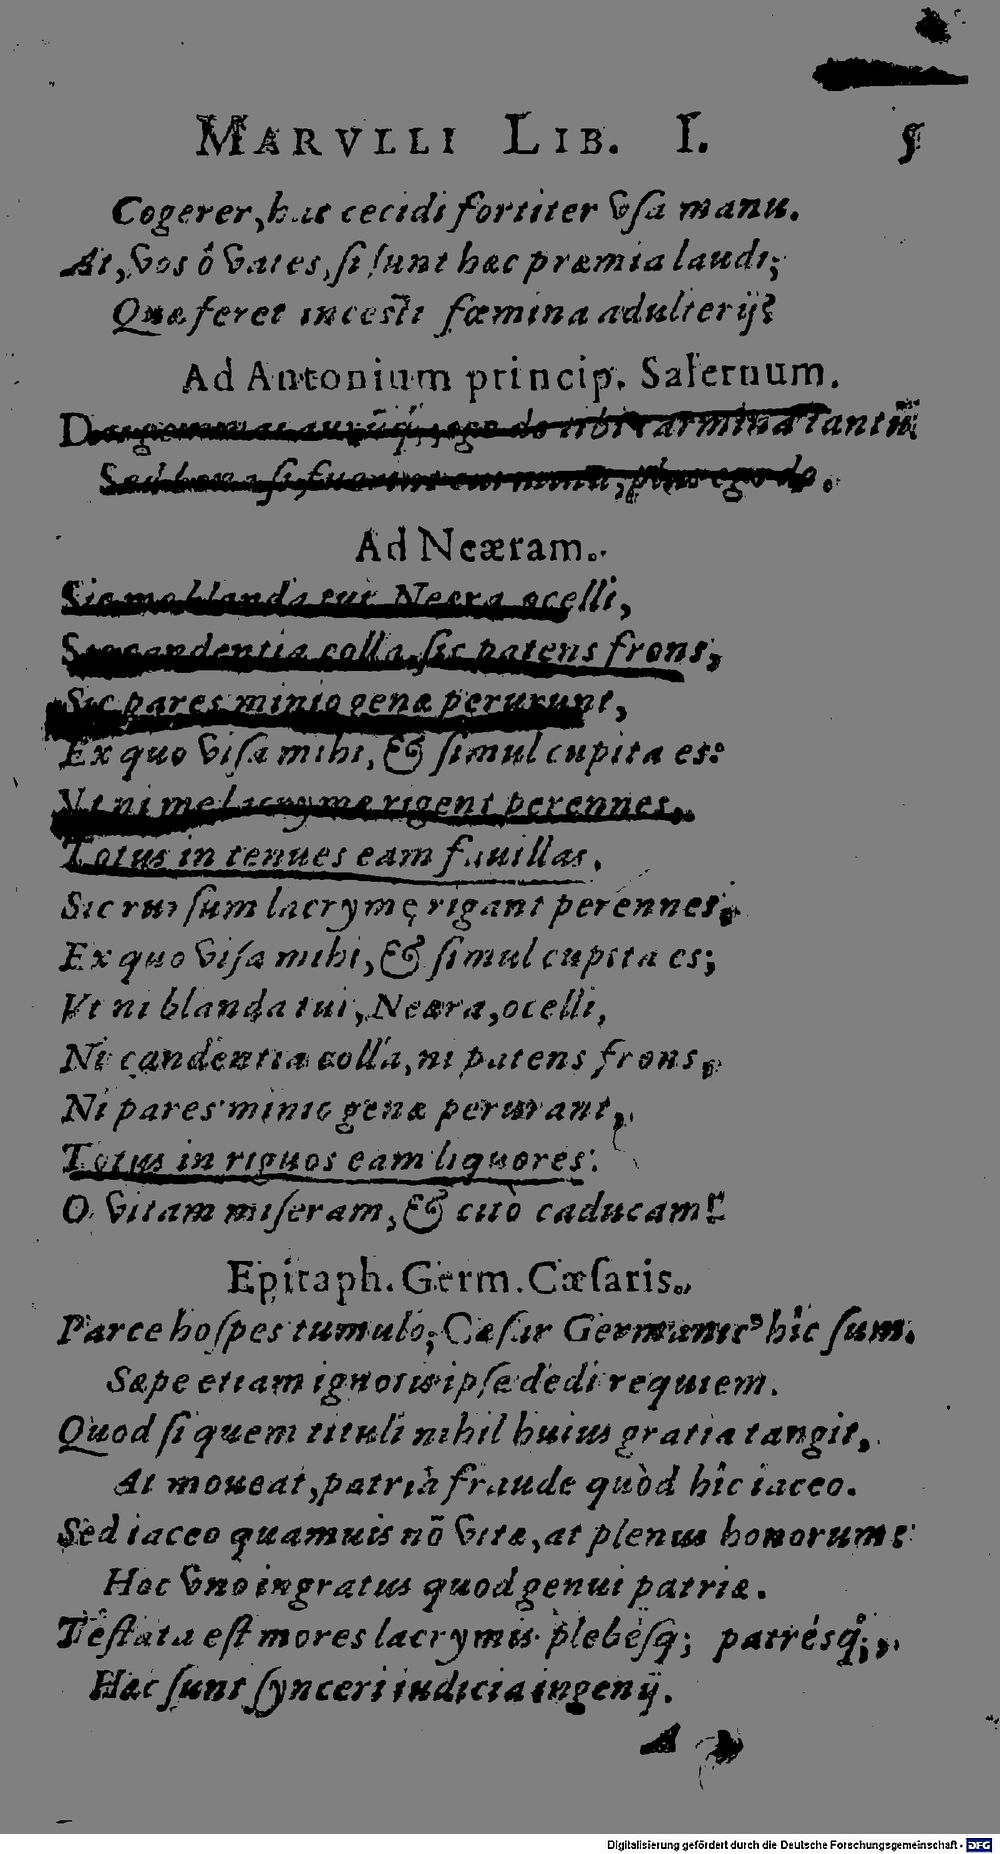 MARVLLI LIB. I. 5
Cogerer, hac cecidi fortiter vsa manu.
At, vos ô vates, si sunt hæc præmia laudi;
Quæ feret incesti fœmina adulterij?
Ad Antonium princip. Salernum.
tibi carmina tantũ
Sed bona si fuerint plus ego do.
Ad Neæram.
Sic me blanda tui Neæra ocelli,
Sic candentia colla, sic patens frons,
Sic pares minio genæ perurunt,
Ex quo visa mihi, & simul cupita es:
Vt ni me lacrymæ rigent perennes,
Totus in tenues eam fauillas.
Sic rursum lacrymę rigant perennes,
Ex quo visa mihi, & simul cupita es;
Vt ni blanda tui, Neæra, ocelli,
Ni candentia colla, ni patens frons,
Ni pares minio genæ perurant,
Totus in riguos eam liquores.
O vitam miseram, & citò caducam!
Epitaph. Germ. Cæsaris.
Parce hospes tumulo; Cæsar Germanic⁹ hîc sum.
Sæpe etiam ignotis ipse dedi requiem.
Quod si quem tituli nihil huius gratia tangit,
At moueat, patriâ fraude quòd hîc iaceo.
Sed iaceo quamuis nõ vitæ, at plenus honorum:
Hoc vno ingratus quod genui patriæ.
Testata est mores lacrymis plebésq; patrésq;,
Hæc sunt synceri iudicia ingenij.
A
Digitalisierung gefördert durch die Deutsche Forschungsgemeinschaft - DFG